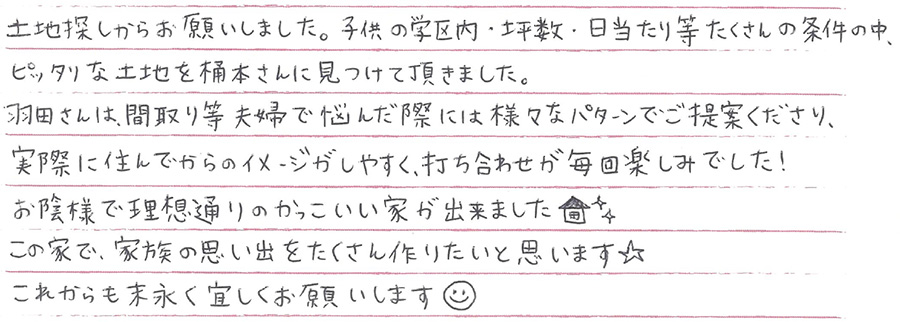 土地探しからお願いしました。子供の学区内・坪数・日当たり等たくさんの条件の中、
ピッタリな土地を桶本さんに見つけて頂きました。
羽田さんは、間取り等夫婦で悩んだ際には様々なパターンでご提案くださり、
実際に住んでからのイメージがしやすく、打ち合わせが毎回楽しみでした！
お陰様で理想通りのかっこいい家が出来ました
この家で、家族の思い出をたくさん作りたいと思います☆
これからも末永く宜しくお願いします